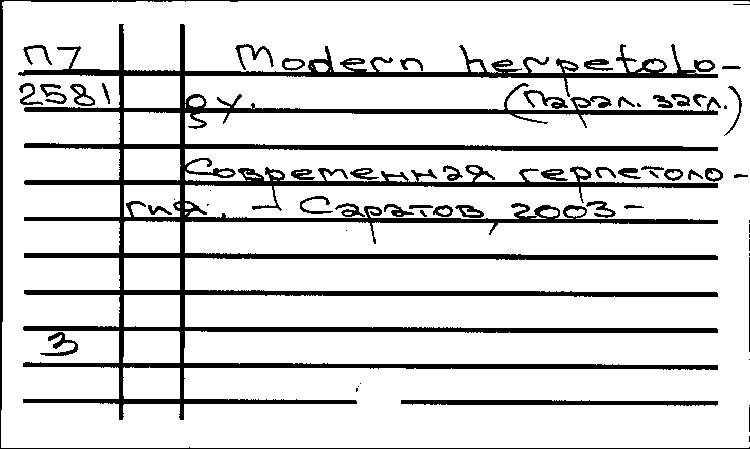 П7 Modern herpetolo-
2581 gy. (Парал. загл.)
Современная герпетоло-
гия. - Саратов, 2003-
3